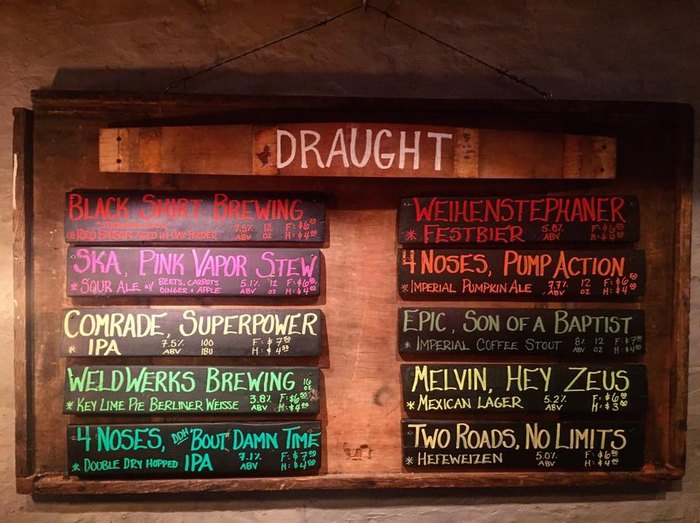 DRAUGHT
BLACK SHIRT BREWING
* RED SAISON AGED IN OAK FOEDER 7.5% ABV 12 OZ F: $6.00 H: $4.00
SKA, PINK VAPOR STEW
* SOUR ALE W/ BEETS, CARROTS GINGER + APPLE 5.1% ABV 12 OZ F: $6 H: $4
COMRADE, SUPERPOWER
* IPA 7.5% ABV 100 IBU F: $7 H: $4
WELDWERKS BREWING 16 OZ
* KEY LIME PIE BERLINER WEISSE 3.8% ABV F: $6 H: $4
4 NOSES, DDH 'BOUT DAMN TIME
* DOUBLE DRY HOPPED IPA 7.1% ABV F: $7 H: $4
WEIHENSTEPHANER
* FESTBIER 5.8% ABV F: $6 H: $4
4 NOSES, PUMP ACTION
* IMPERIAL PUMPKIN ALE 7.7% ABV 12 OZ F: $6 H: $4
EPIC, SON OF A BAPTIST
* IMPERIAL COFFEE STOUT 8% ABV 12 OZ F: $7 H: $4
MELVIN, HEY ZEUS
* MEXICAN LAGER 5.2% ABV F: $6 H: $3
TWO ROADS, NO LIMITS
* HEFEWEIZEN 5.0% ABV F: $6 H: $4